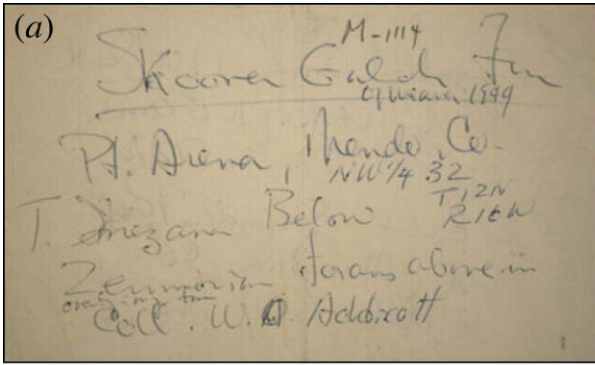 (a)
M-1114
Skooner Gulch Fm
of Weaver 1944
Pt. Arena, Mendo. Co.
NW 1/4 32
T12N
R16W
T. Inezana Below
Zemorrian forams above in
Coll. W.O. Addicott